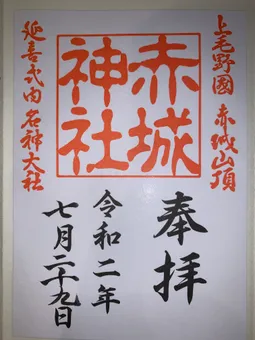 上毛野國 赤城山頂
赤城神社
延喜式内名神大社
奉拝
令和二年
七月二十九日